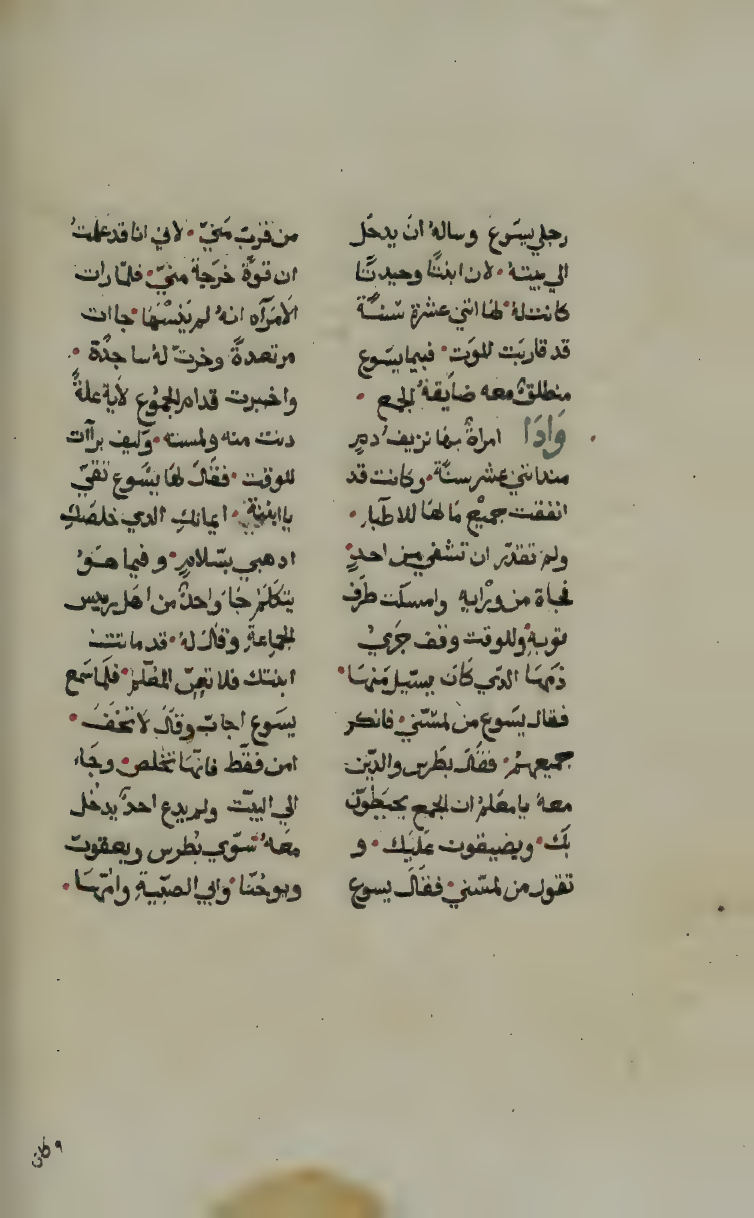 رجلي يسوع وساله ان يدخل
الي بيته • لان ابنتًا وحيدتًا
كانت له • لها اثني عشرة سنة
قد قاربت للموت • فبيما يسوع
منطلق معه ضايقه الجمع •
وَاذا امراة بها نزيف دم
مند اثني عشر سنة • وكانت قد
انفقت جميع ما لها للاطبا •
ولم تقدر ان تشفي من احدٍ
فجاة من ورايه وامسكت طرف
توبه وللوقت وقف جري
دمها الدي كان يسيل منها •
فقال يسوع من لمسني • فانكر
جميعهم • فقال بطرس والدين
معه يا معلم ان الجمع يحيطون
بك • ويضيقون عليك • و
تقول من لمسني • فقال يسوع
من قرب مني • لاني انا قد علمت
ان قوة خرجة مني • فلما رات
الامراه انه لم ينسها • جاات
مرتعدةً وخرت له ساجدة •
واخبرت قدام الجموع لاية علة
دنت منه ولمسته • وكيف براات
للوقت • فقال لها يسوع تقي
يا ابنة • ايمانك الدي خلصك
ادهبي بسلام • وفيما هو
يتكلم جا واحد من اهل رييس
الجماعة وقال له • قد ماتت
ابنتك فلا تعن المعلم • فلما سمع
يسوع اجاب وقال لا تخف •
امن فقط فانها تخلص • وجاء
الي البيت ولم يدع احد يدخل
معه سوي بطرس ويعقوب
ويوحنا وابي الصبية وامها •